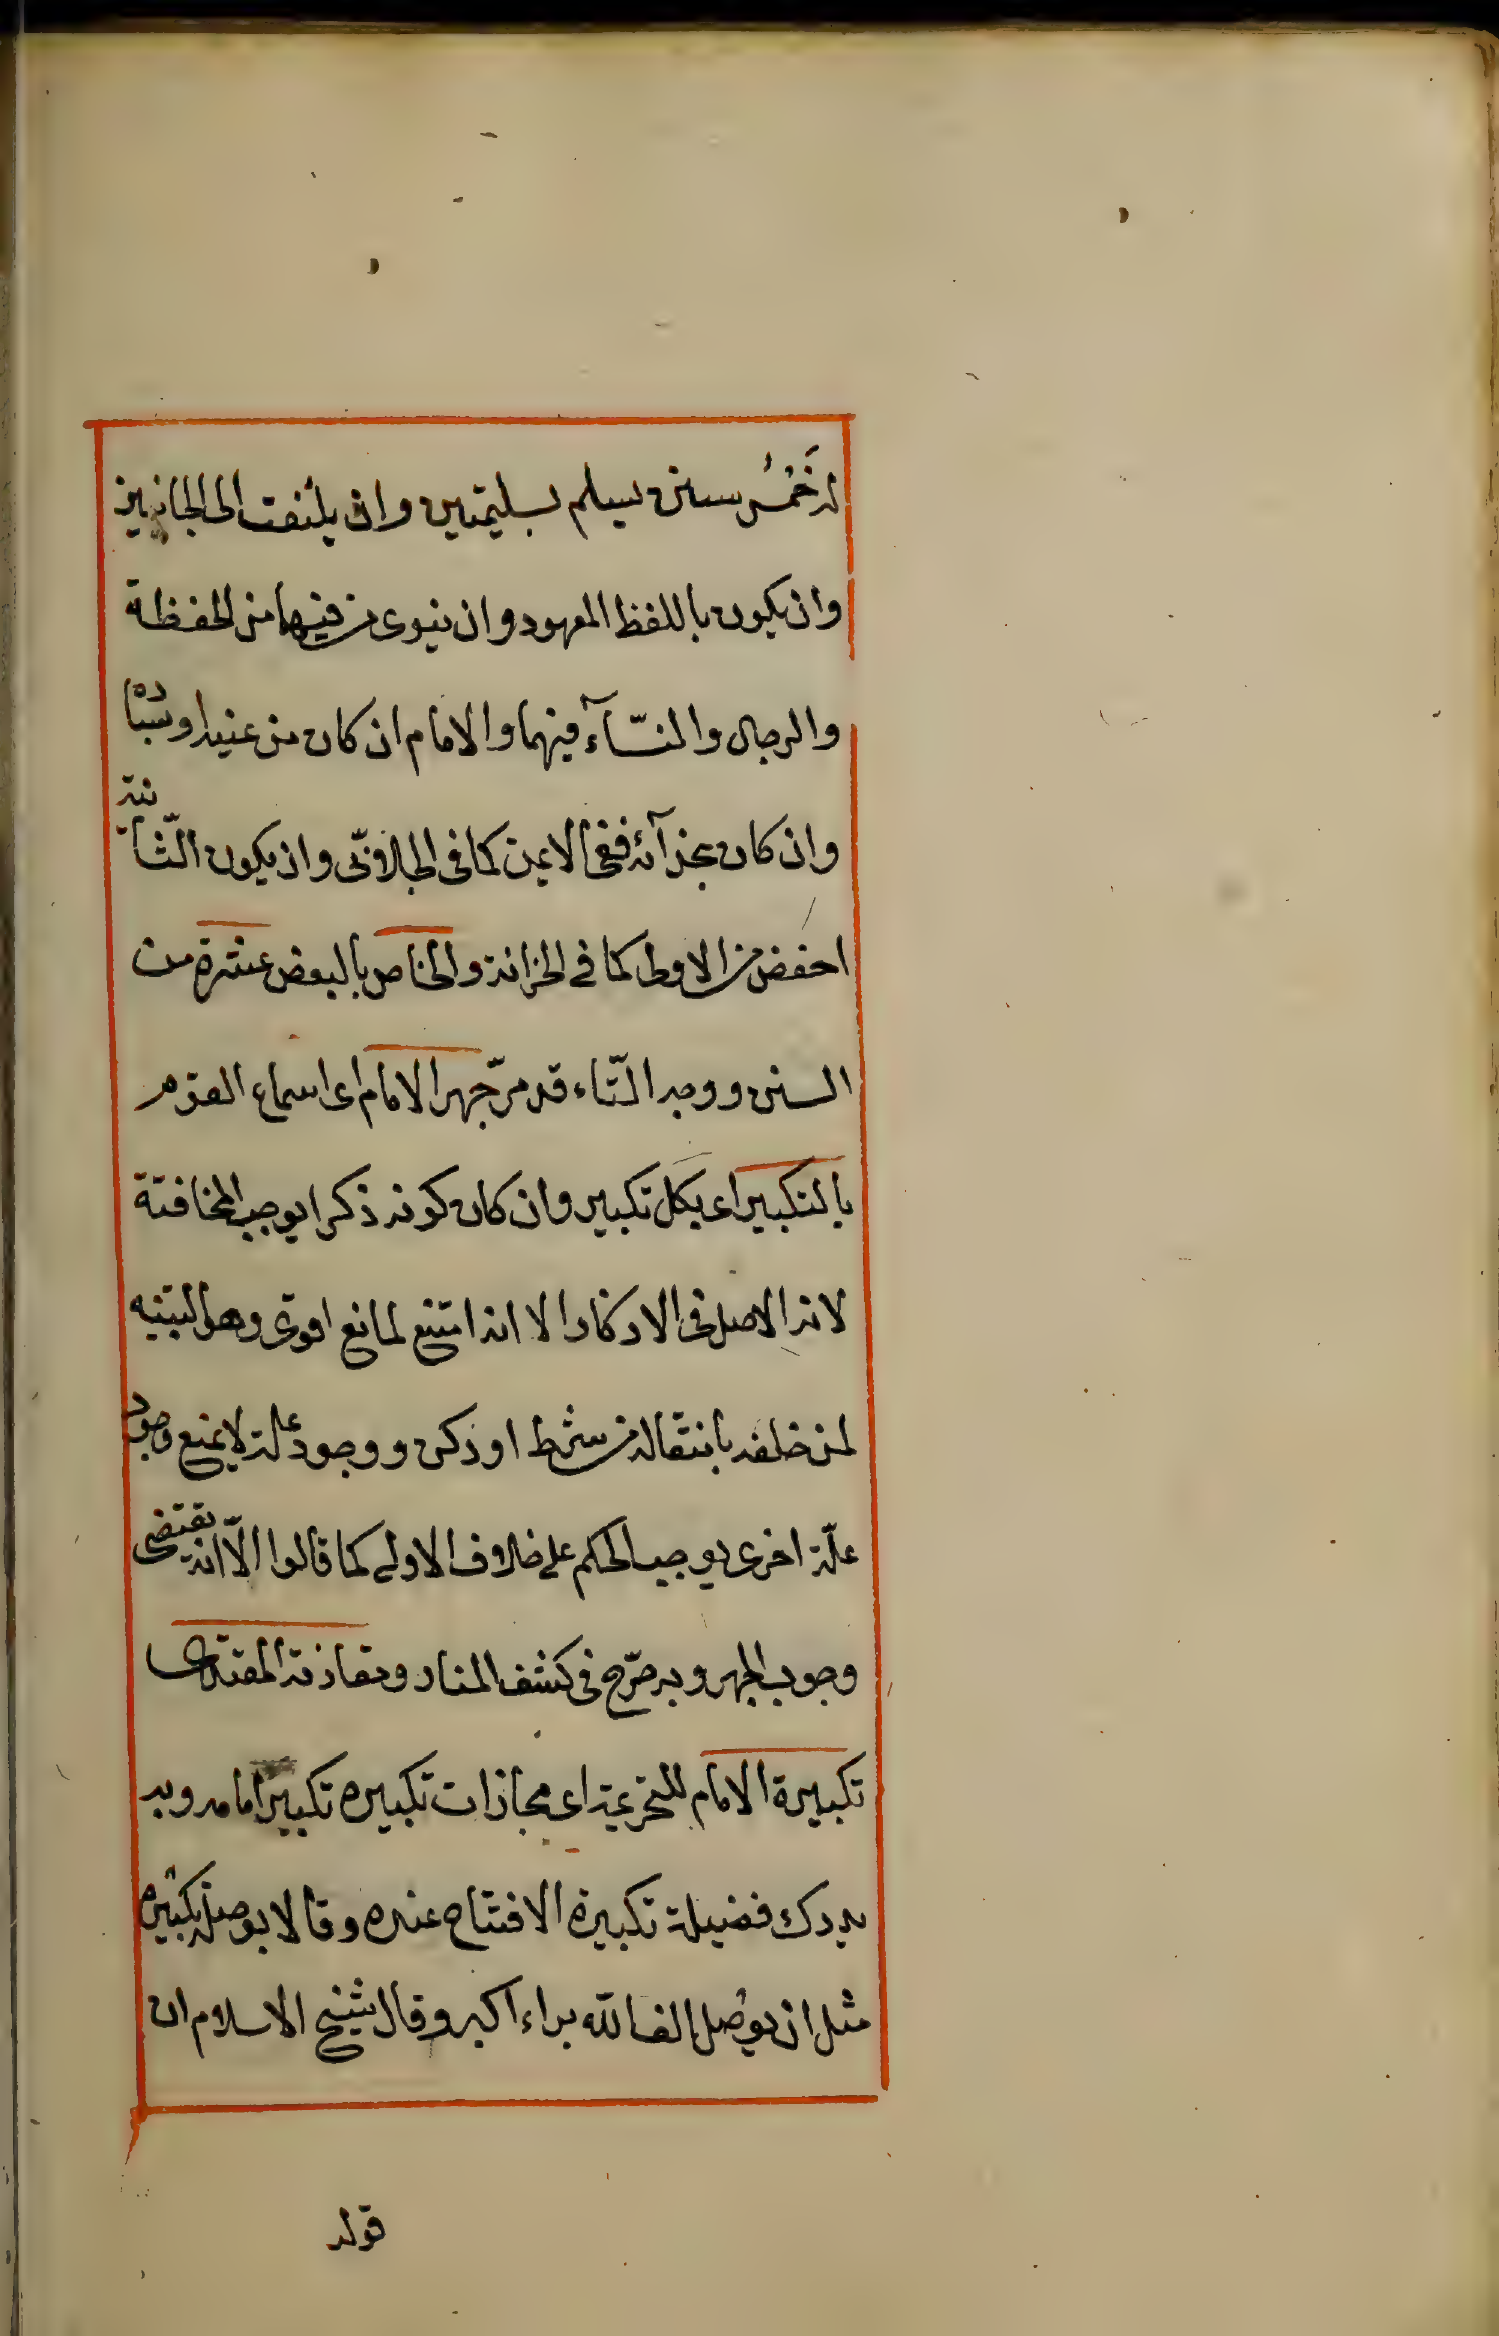 له خَمْسُ سنن يسلم بسليمتين وان يلتفت الى الجانبين
وان يكون باللفظ المعهود وان ينوى من فيهما من الحفظة
والرجال والنسّآء فيهما والامام ان كان من عنيداه
وان كان بحذآئه ففى الايمن كما فى الجلاوبّى وان يكون الثّانية
اخفض من الاولى كما فى الخزانة والخاص بالبعض عشرة من
السنن ووجه التّاء قد مرّ جهر الامام اى اسماع القوم
بالتكبير اى بكل تكبير وان كان كونه ذكرا يوجب المخافتة
لانه الاصل فى الاذكار الا انه امتنع لمانع اقوى وهو التبنيه
لمن خلفه بانتقاله من شرط او ركن ووجود علة لا يمنع وجود
علّة اخرى يوجب الحكم على خلاف الاولى كما قالوا الّا انه يقتضى
وجوب الجهر وبه صرّح فى كشف المنار ومقارنة المقتدى
تكبيرة الامام للتحريمة اى محازات تكبيره تكبير امامه وبه
يدرك فضيلة تكبيرة الافتتاح عنده وقالا يوصل تكبيره
مثل ان يوصل الف الله براء اكبر وقال شيخ الاسلام ان
قوله